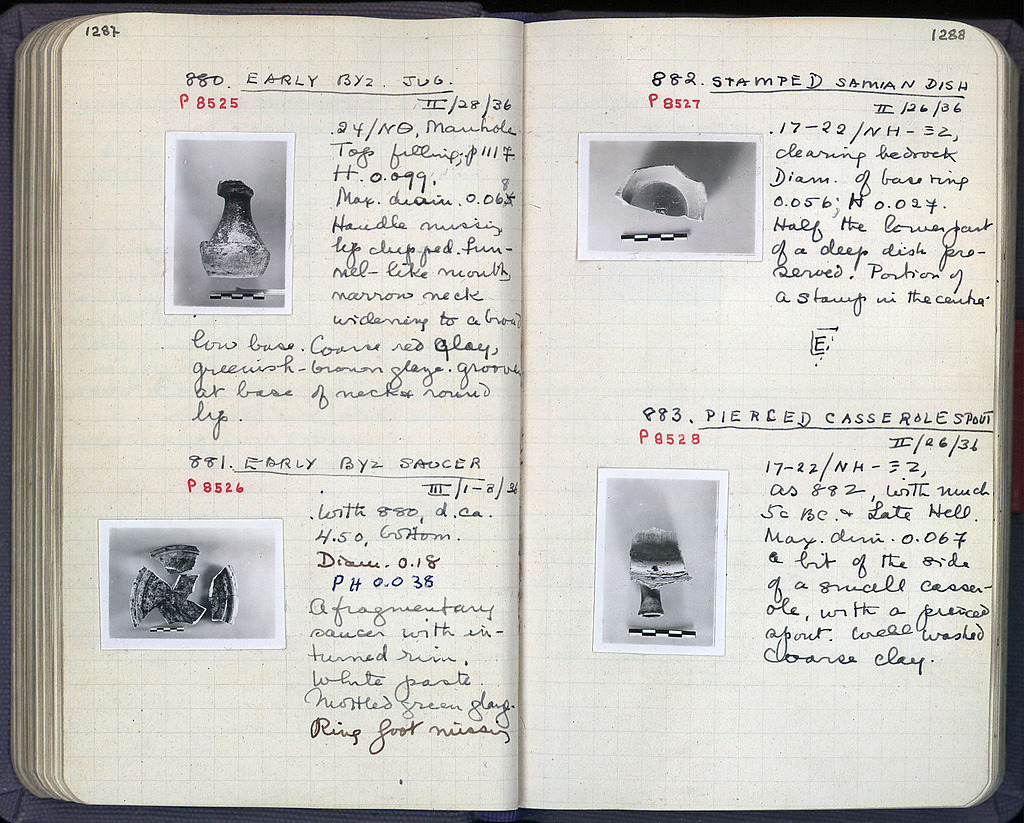 1287
880. EARLY BYZ. JUG.
P 8525
II/28/36
.24/ΝΘ, Manhole
Top filling, p 1117
H. 0.099.
Max. diam. 0.068
Handle missing
lip chipped. fun-
nel-like mouth,
narrow neck
widening to a broad
low base. Coarse red clay,
greenish-brown glaze. grooves
at base of neck & round
lip.
881. EARLY BYZ SAUCER
P 8526
III/1-3/36
.With 880, d. ca.
4.50, bottom.
Diam. 0.18
PH 0.038
A fragmentary
saucer with in-
turned rim.
White paste.
Mottled green glaze.
Ring foot missing
1288
882. STAMPED SAMIAN DISH
P 8527
II/26/36
.17-22/ΝΗ-ΞΖ,
clearing bedrock
Diam. of base ring
0.056; H 0.027.
Half the lower part
of a deep dish pre-
served. Portion of
a stamp in the centre.
E
883. PIERCED CASSEROLE SPOUT
P 8528
II/26/36
17-22/ΝΗ-ΞΖ,
as 882, with much
5c BC. & Late Hell.
Max. dim. 0.067
a bit of the side
of a small casser-
ole, with a pierced
spout. Well washed
coarse clay.